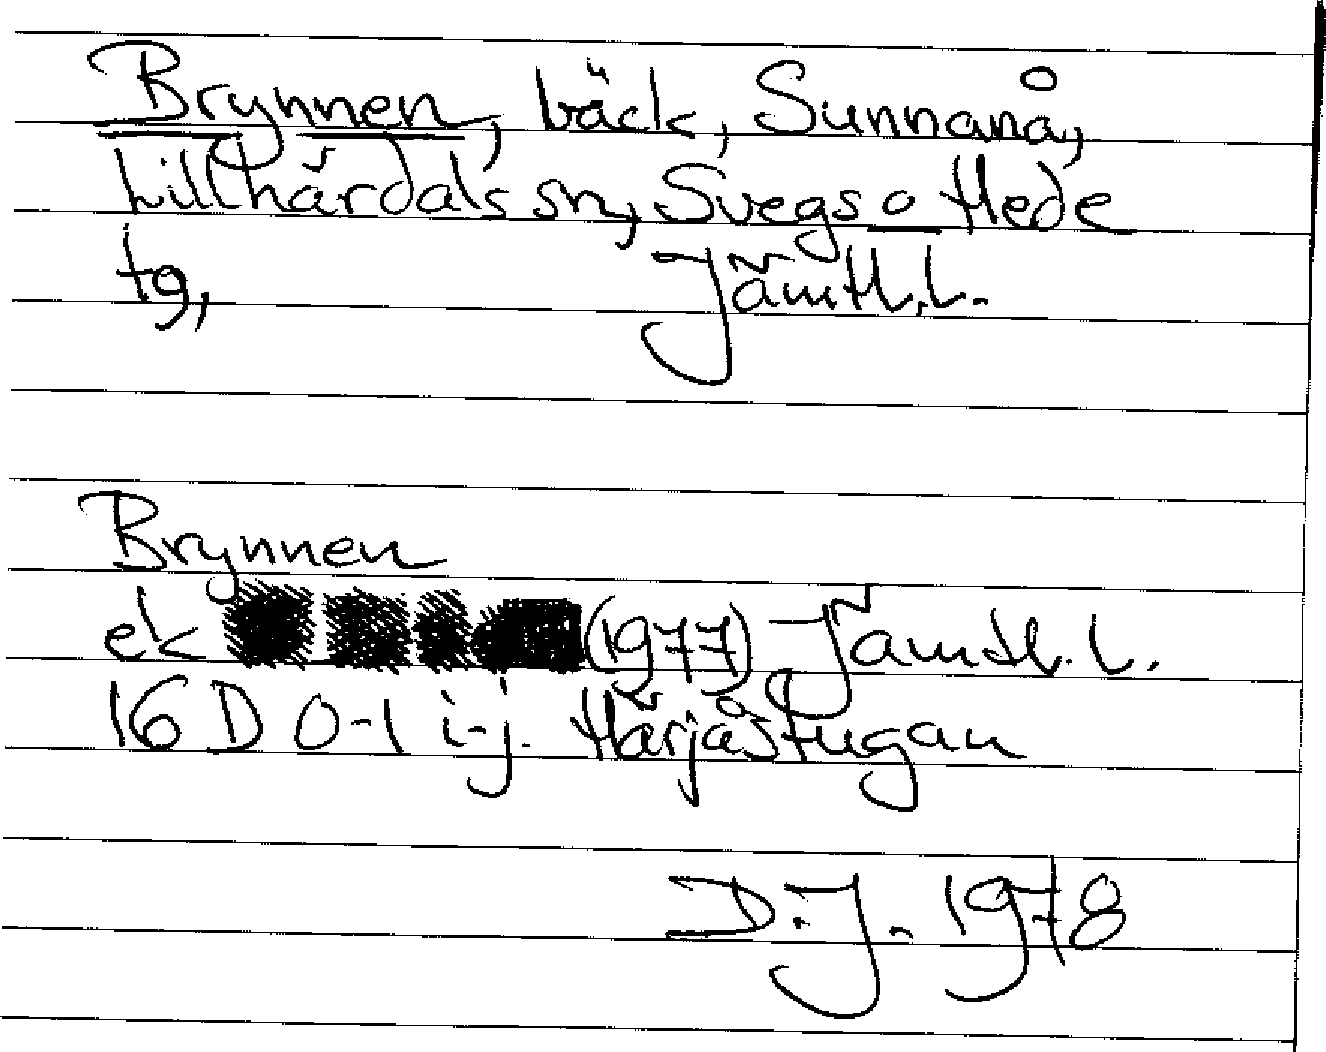 Brynnen, bäck, Sunnanå,
Lillhärdals sn, Svegs o Hede
tg, Jämtl.L.
Brynnen
ek (1977) Jämtl. L.
16 D 0-1 i-j. Härjåstugan
D.J. 1978